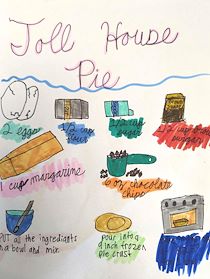 Toll House
Pie
2 eggs
1/2 cup
flour
1/2 cup
sugar
1/2 cup brown
sugar
1 cup margarine
6 oz chocolate
chips
PUT all the ingredients
in a bowl and mix.
pour into a
9 inch frozen
pie crust